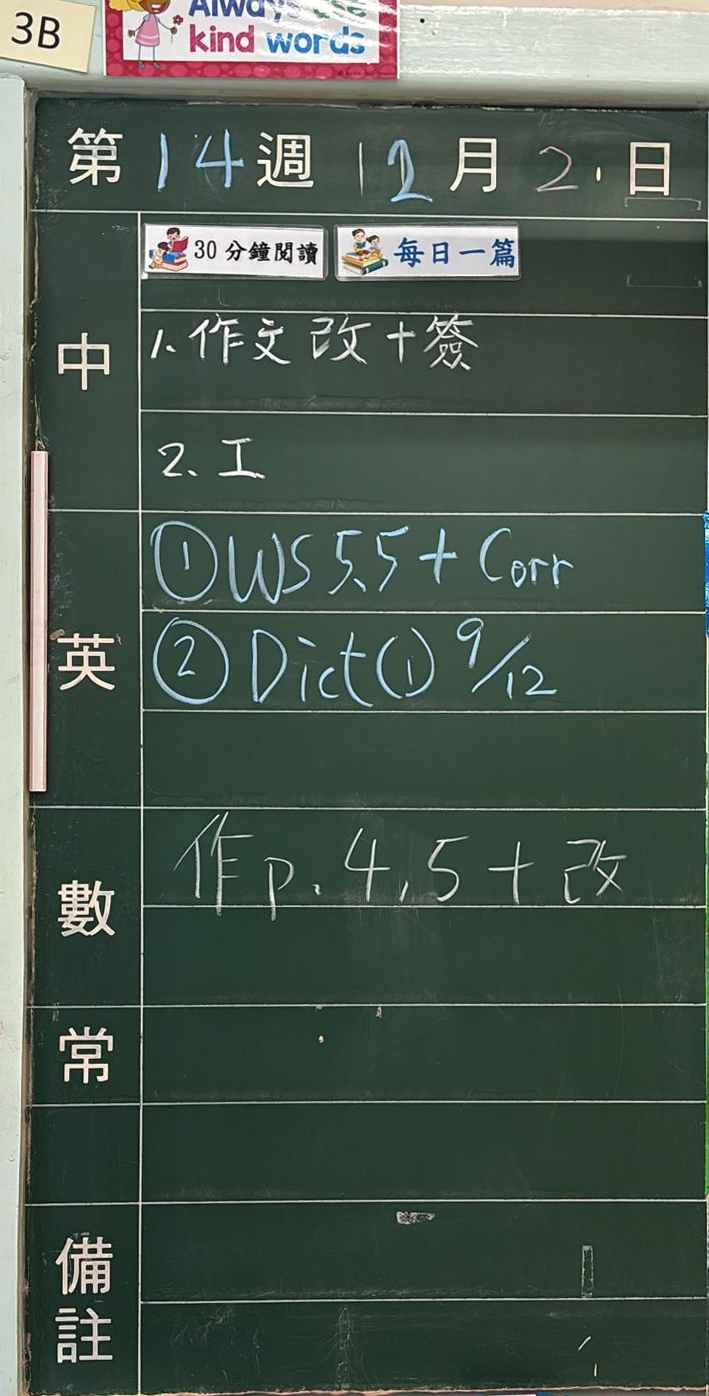 3B
Always
kind words
第14週 12月2日
30分鐘閱讀 每日一篇
中
1. 作文改+簽
2. 工
英
①WS 5.5 + Corr
②Dict(1) 9/12
數
作p.4,5+改
常
備註